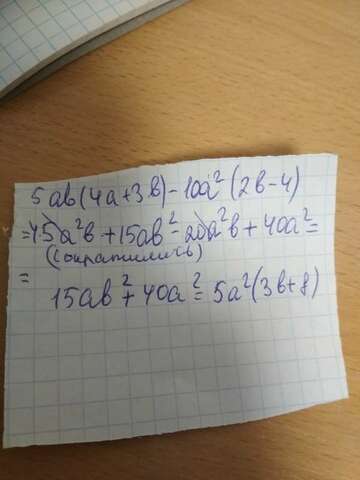 5ab(4a+3b)-10a²(2b-4)
=45a²b+15ab²-20a²b+40a²=
(сократились)
=
15ab²+40a²=5a²(3b+8)